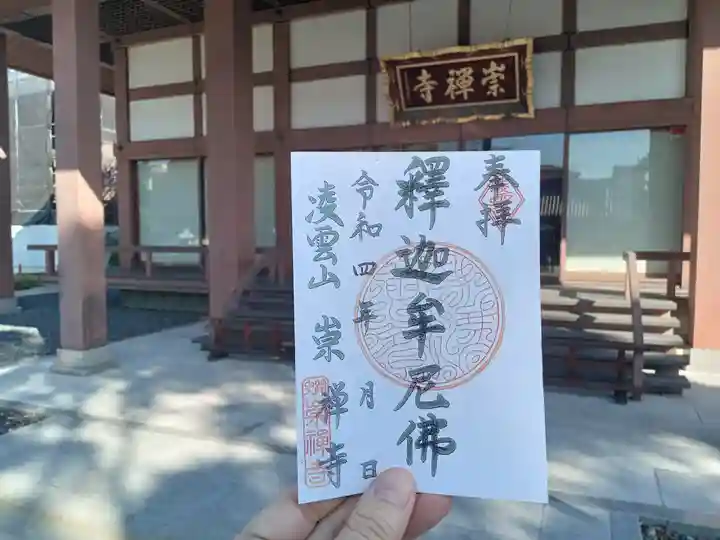 寺禅崇
奉拝
釋迦牟尼佛
令和四年 月 日
凌雲山 崇禅寺